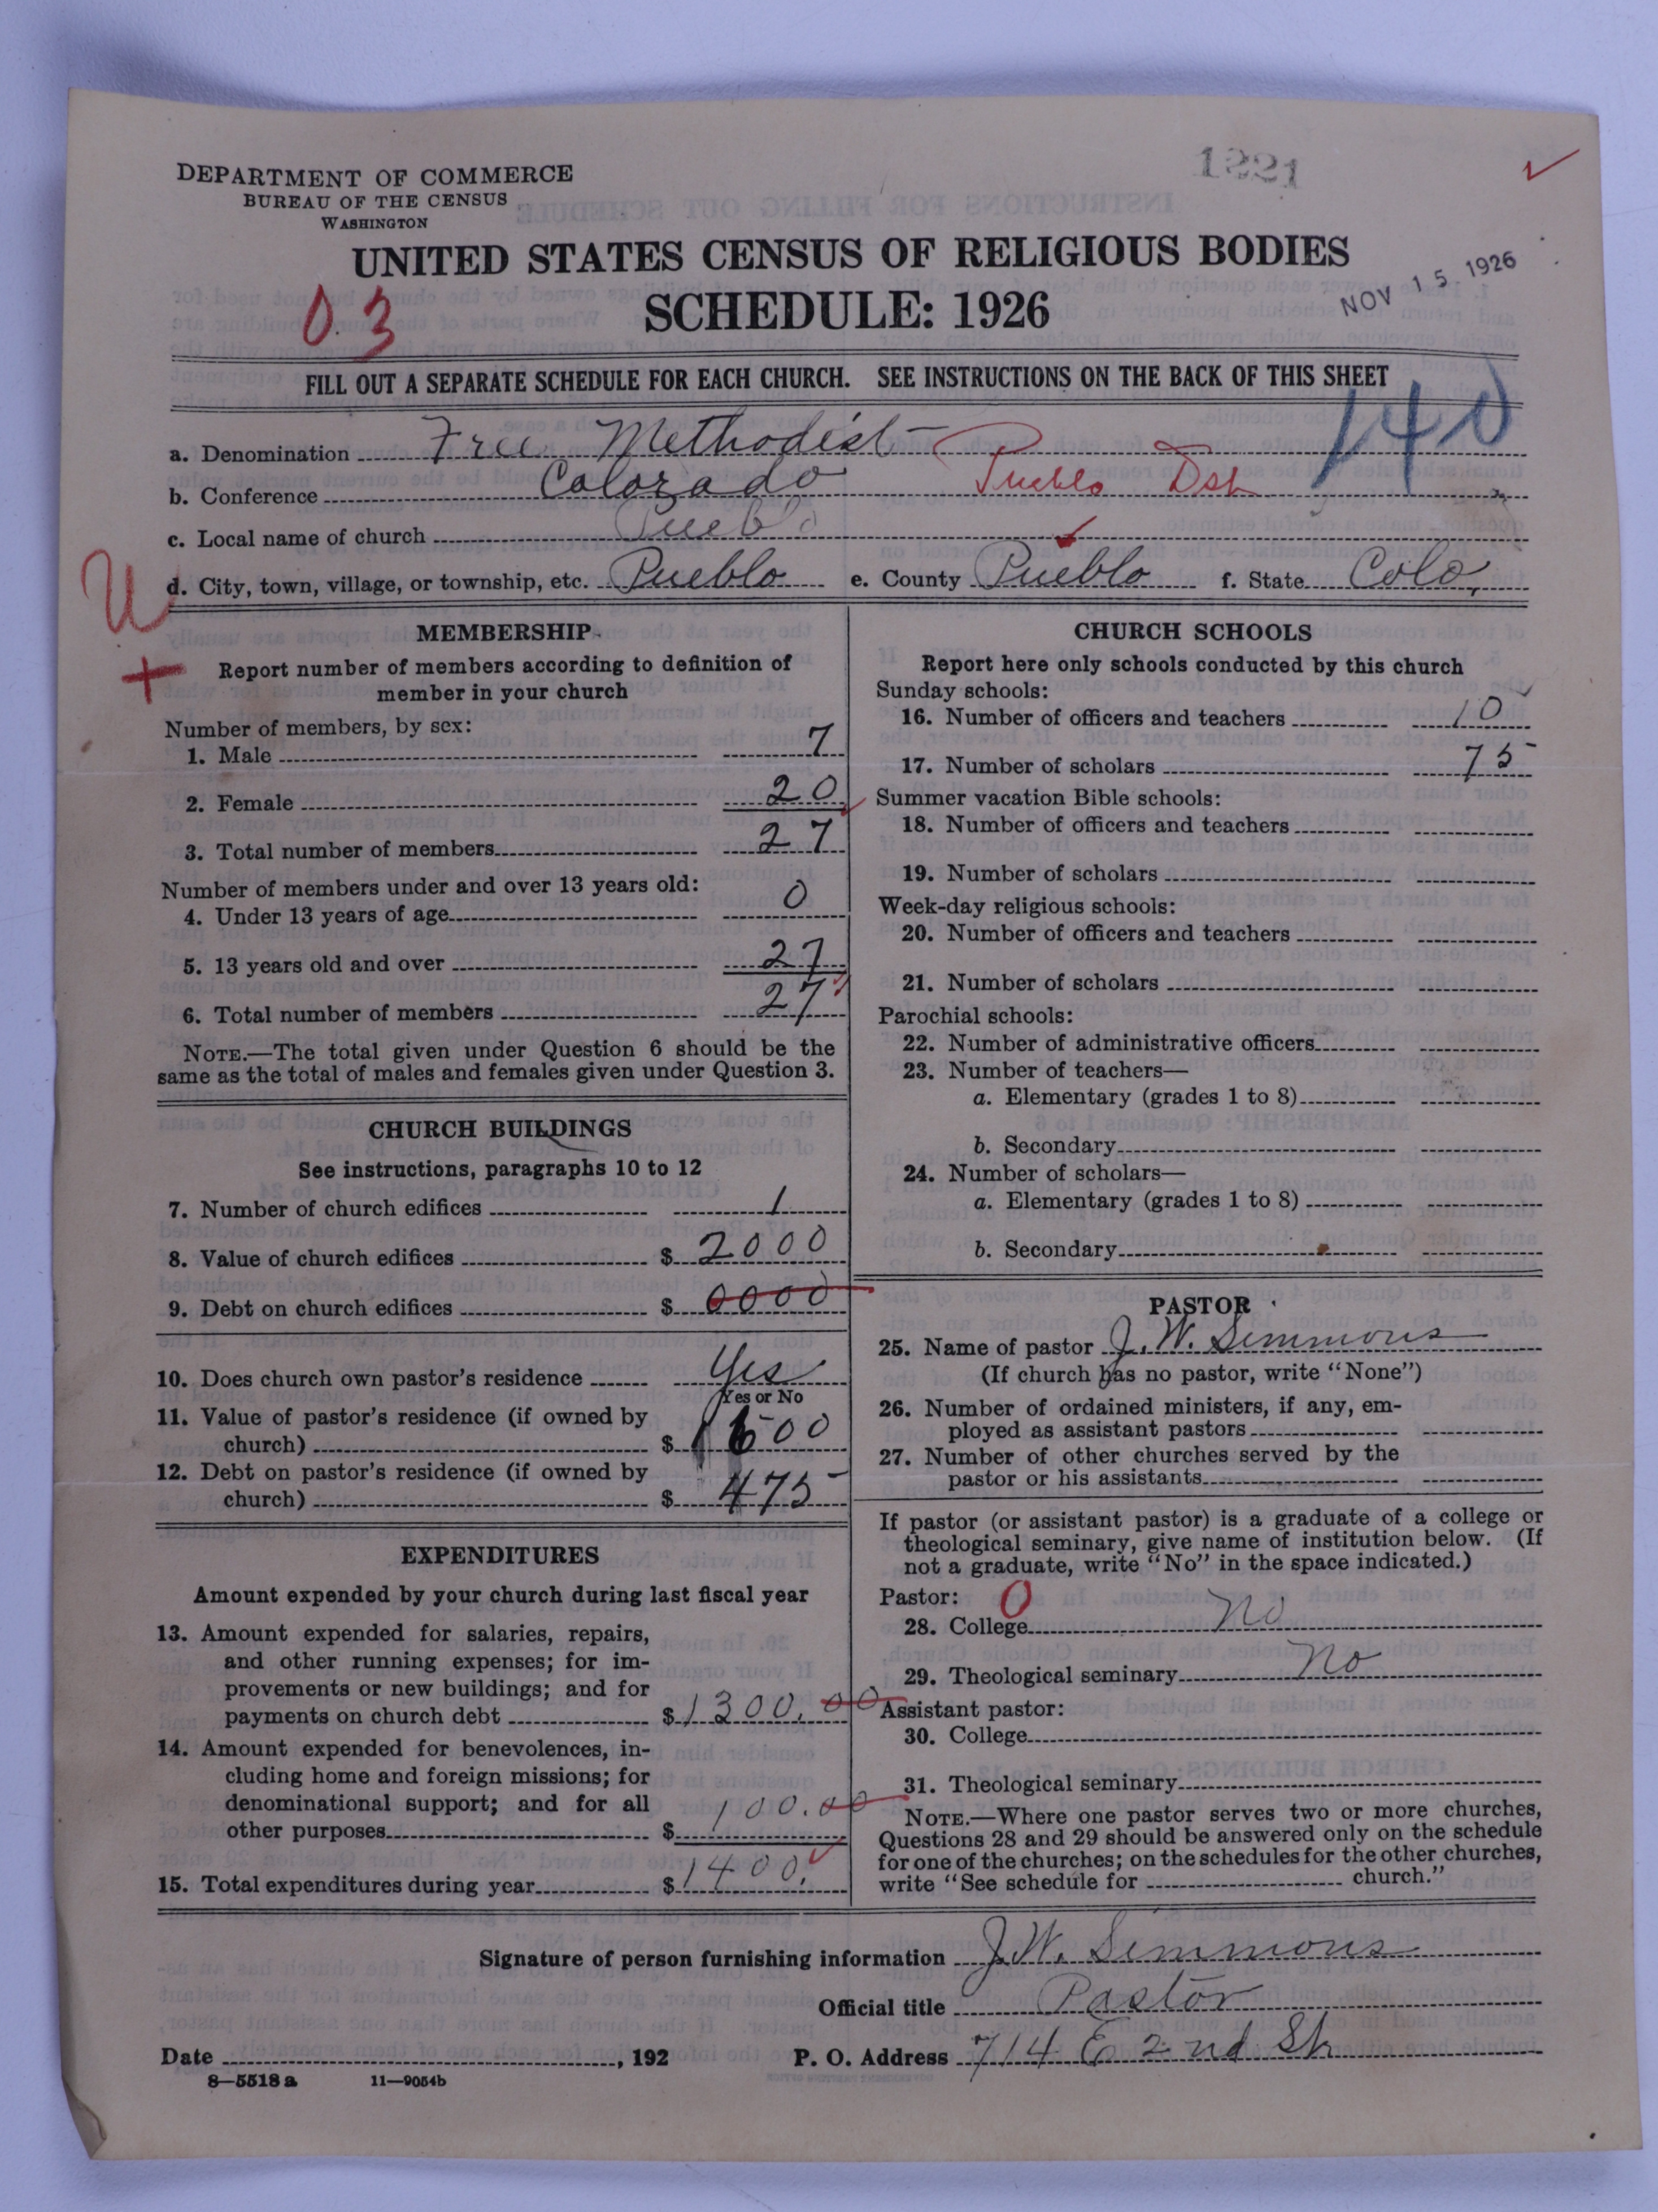 1221
DEPARTMENT OF COMMERCE
BUREAU OF THE CENSUS
WASHINGTON
UNITED STATES CENSUS OF RELIGIOUS BODIES
SCHEDULE: 1926
NOV 15 1926
03
FILL OUT A SEPARATE SCHEDULE FOR EACH CHURCH. SEE INSTRUCTIONS ON THE BACK OF THIS SHEET
140
a. Denomination Free Methodist
b. Conference Colorado Pueblo Dst
c. Local name of church Pueblo
d. City, town, village, or township, etc. Pueblo e. County Pueblo f. State Colo,
MEMBERSHIP
Report number of members according to definition of
member in your church
Number of members, by sex:
1. Male 7
2. Female 20
3. Total number of members 27
Number of members under and over 13 years old:
4. Under 13 years of age 0
5. 13 years old and over 27
6. Total number of members 27
NOTE.—The total given under Question 6 should be the
same as the total of males and females given under Question 3.
CHURCH BUILDINGS
See instructions, paragraphs 10 to 12
7. Number of church edifices 1
8. Value of church edifices $ 2000
9. Debt on church edifices $ 0000
10. Does church own pastor's residence Yes
Yes or No
11. Value of pastor's residence (if owned by
church) $ 1600
12. Debt on pastor's residence (if owned by
church) $ 475
EXPENDITURES
Amount expended by your church during last fiscal year
13. Amount expended for salaries, repairs,
and other running expenses; for im-
provements or new buildings; and for
payments on church debt $ 1300.00
14. Amount expended for benevolences, in-
cluding home and foreign missions; for
denominational support; and for all
other purposes $ 100.00
15. Total expenditures during year $ 1400.
CHURCH SCHOOLS
Report here only schools conducted by this church
Sunday schools:
16. Number of officers and teachers 10
17. Number of scholars 75
Summer vacation Bible schools:
18. Number of officers and teachers
19. Number of scholars
Week-day religious schools:
20. Number of officers and teachers
21. Number of scholars
Parochial schools:
22. Number of administrative officers
23. Number of teachers—
a. Elementary (grades 1 to 8)
b. Secondary
24. Number of scholars—
a. Elementary (grades 1 to 8)
b. Secondary
PASTOR
25. Name of pastor J. W. Simmons
(If church has no pastor, write "None")
26. Number of ordained ministers, if any, em-
ployed as assistant pastors
27. Number of other churches served by the
pastor or his assistants
If pastor (or assistant pastor) is a graduate of a college or
theological seminary, give name of institution below. (If
not a graduate, write "No" in the space indicated.)
Pastor: 0
28. College No
29. Theological seminary No
Assistant pastor:
30. College
31. Theological seminary
NOTE.—Where one pastor serves two or more churches,
Questions 28 and 29 should be answered only on the schedule
for one of the churches; on the schedules for the other churches,
write "See schedule for church."
Signature of person furnishing information J. W. Simmons
Official title Pastor
Date , 192 P. O. Address 714 E 2nd St
8—5518 a 11—9054b